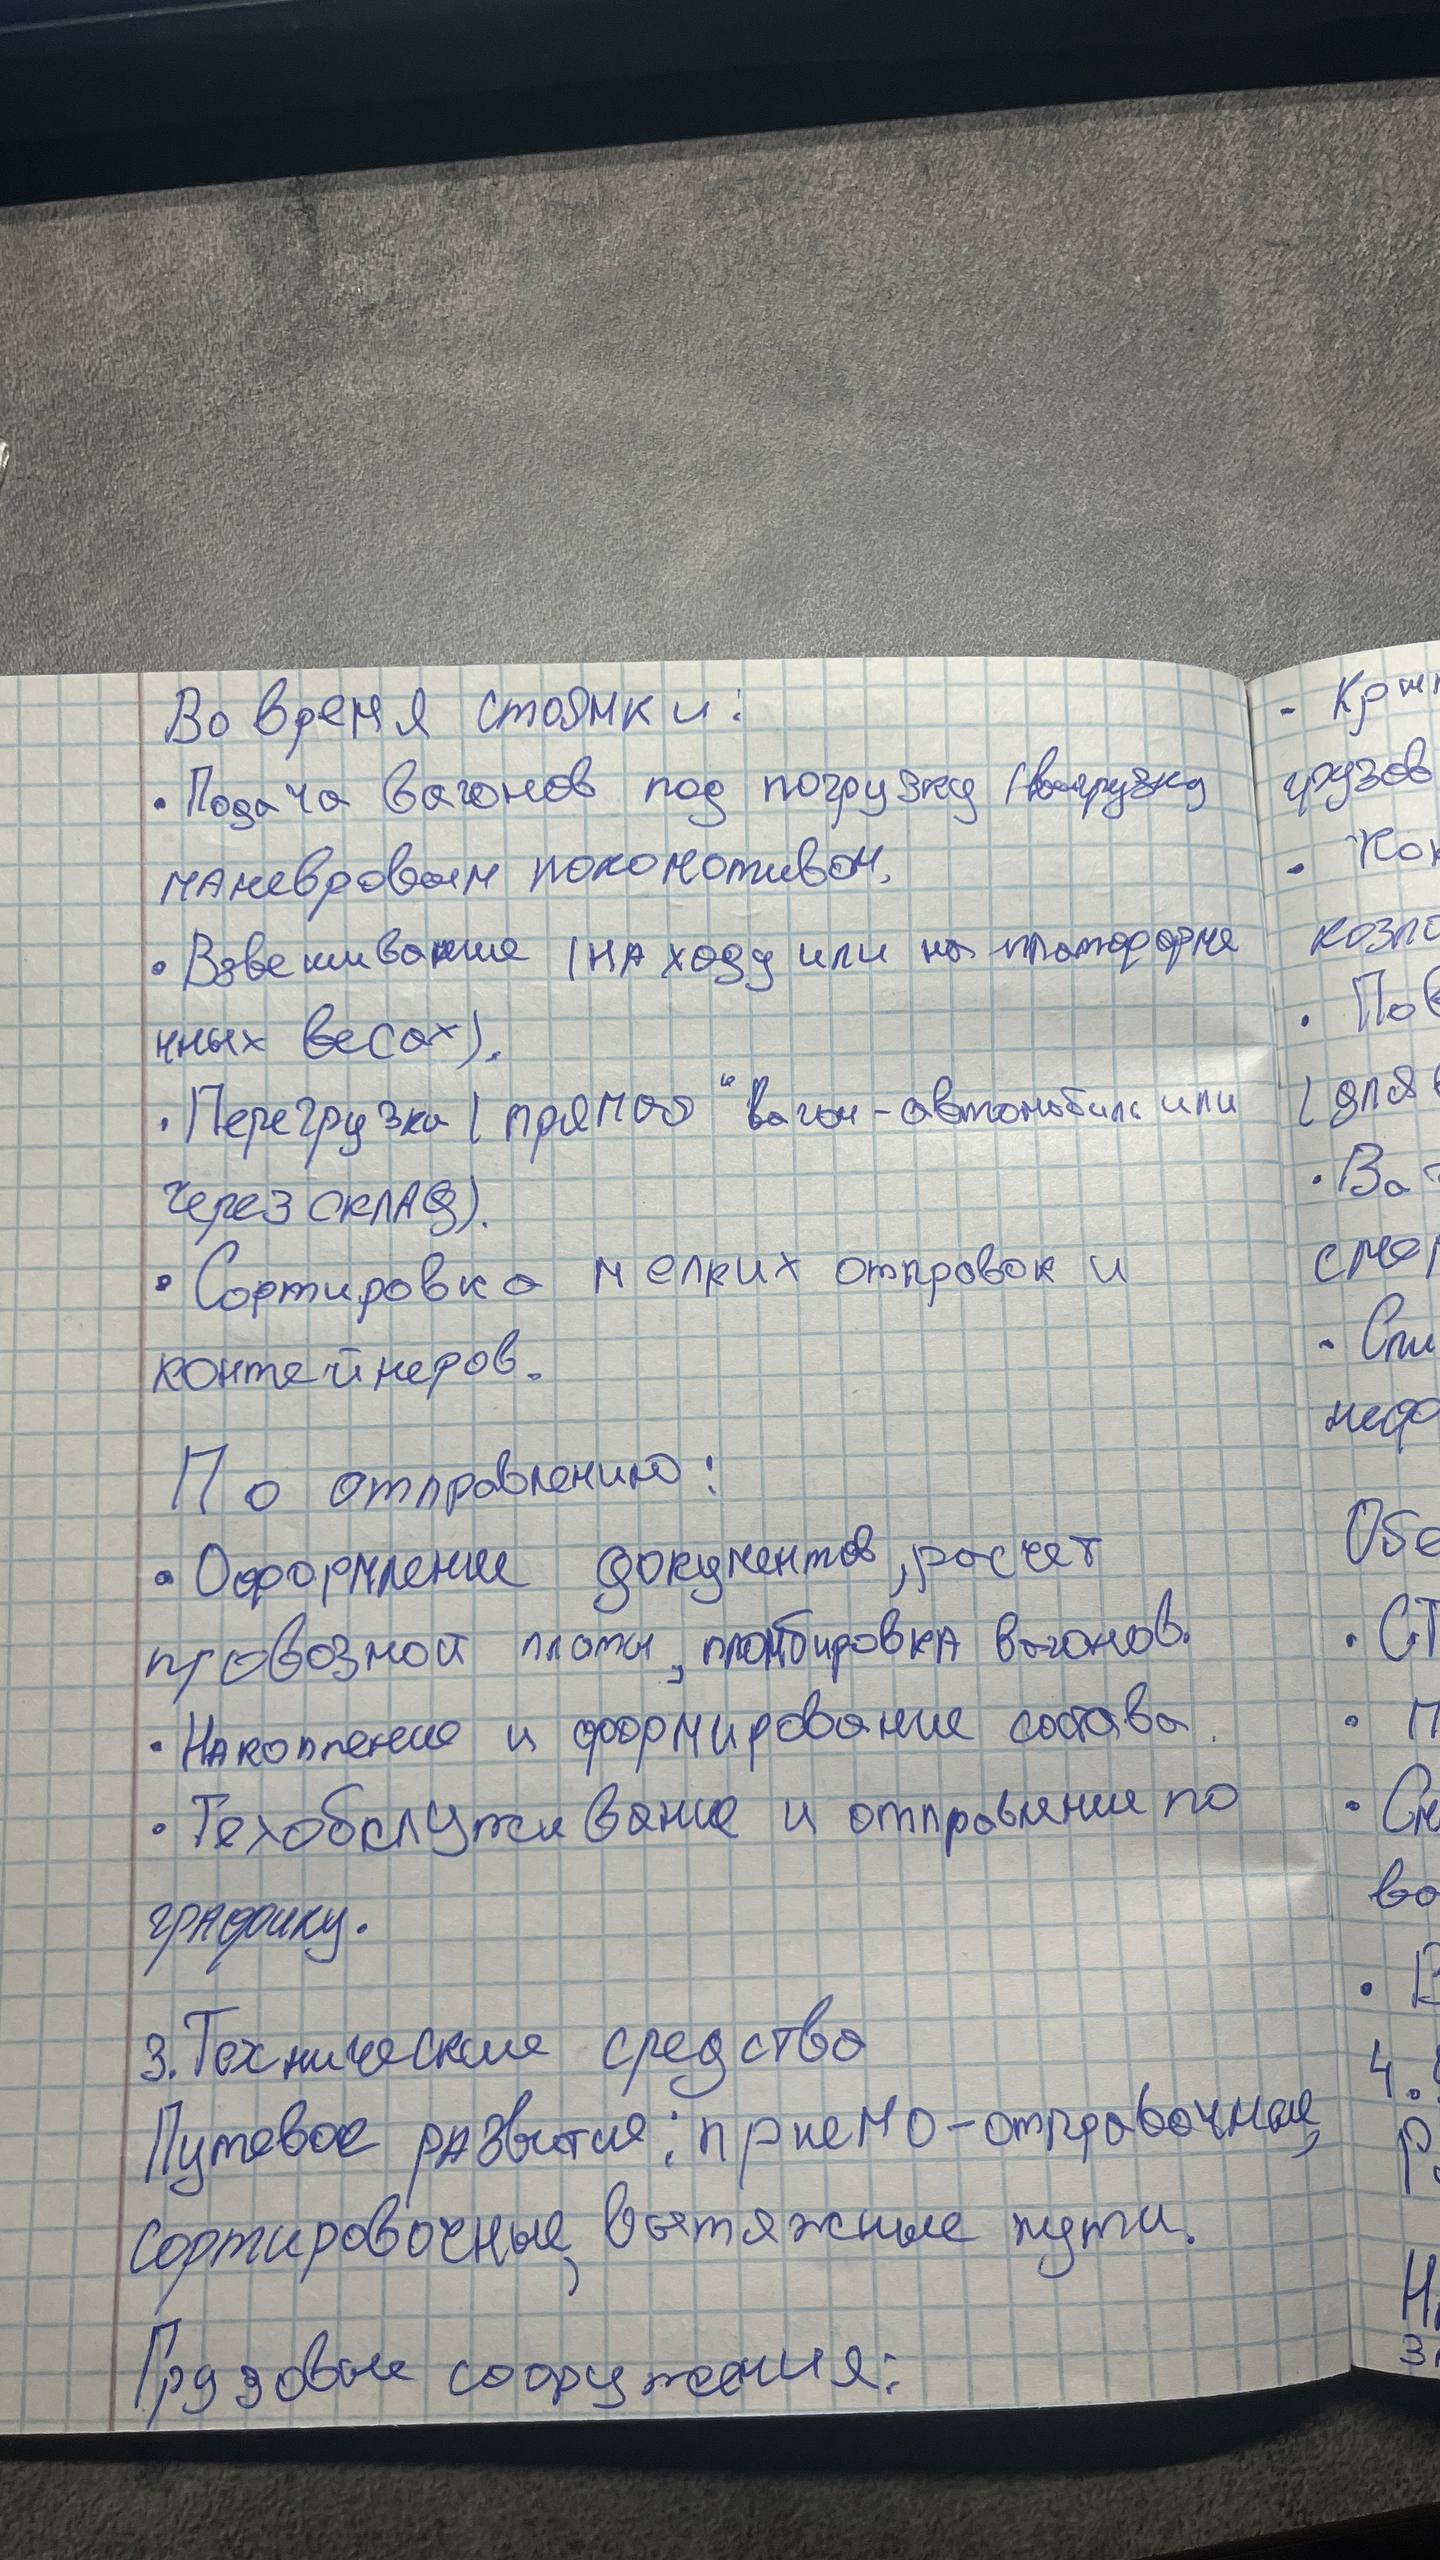 Во время стоянки:
• Подача вагонов под погрузку/выгрузку
маневровым локомотивом.
• Взвешивание (на ходу или на платформе
нных весах).
• Перегрузка (прямая "вагон-автомобиль или
через склад).
• Сортировка мелких отправок и
контейнеров.
По отправлению:
• Оформление документов, расчет
провозной платы, пломбировка вагонов.
• Накопление и формирование состава.
• Техобслуживание и отправление по
графику.
3. Технические средства
Путевое развитие: приемо-отправочные,
сортировочные, вытяжные пути.
Грузовые сооружения:
грузов
4.